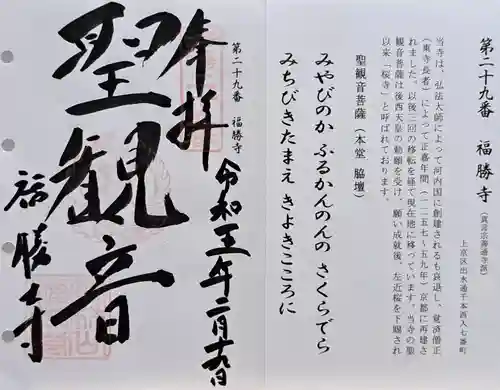 第二十九番　福勝寺（真言宗善通寺派）
上京区出水通千本西入七番町
当寺は、弘法大師によって河内国に創建されるも衰退し、覚済僧正
（東寺長者）によって正嘉年間（一二五七～五九年）京都に再建さ
れました。以後三回の移転を経て現在地に移っています。当寺の聖
観音菩薩は後西天皇の勅願を受け、願い成就後、左近桜を下賜され
以来「桜寺」と呼ばれております。
聖観音菩薩（本堂 脇壇）
みやびのか ふるかんのんの さくらでら
みちびきたまえ きよきこころに
第二十九番　福勝寺
奉拝
令和五年二月十九日
聖観音
福勝寺